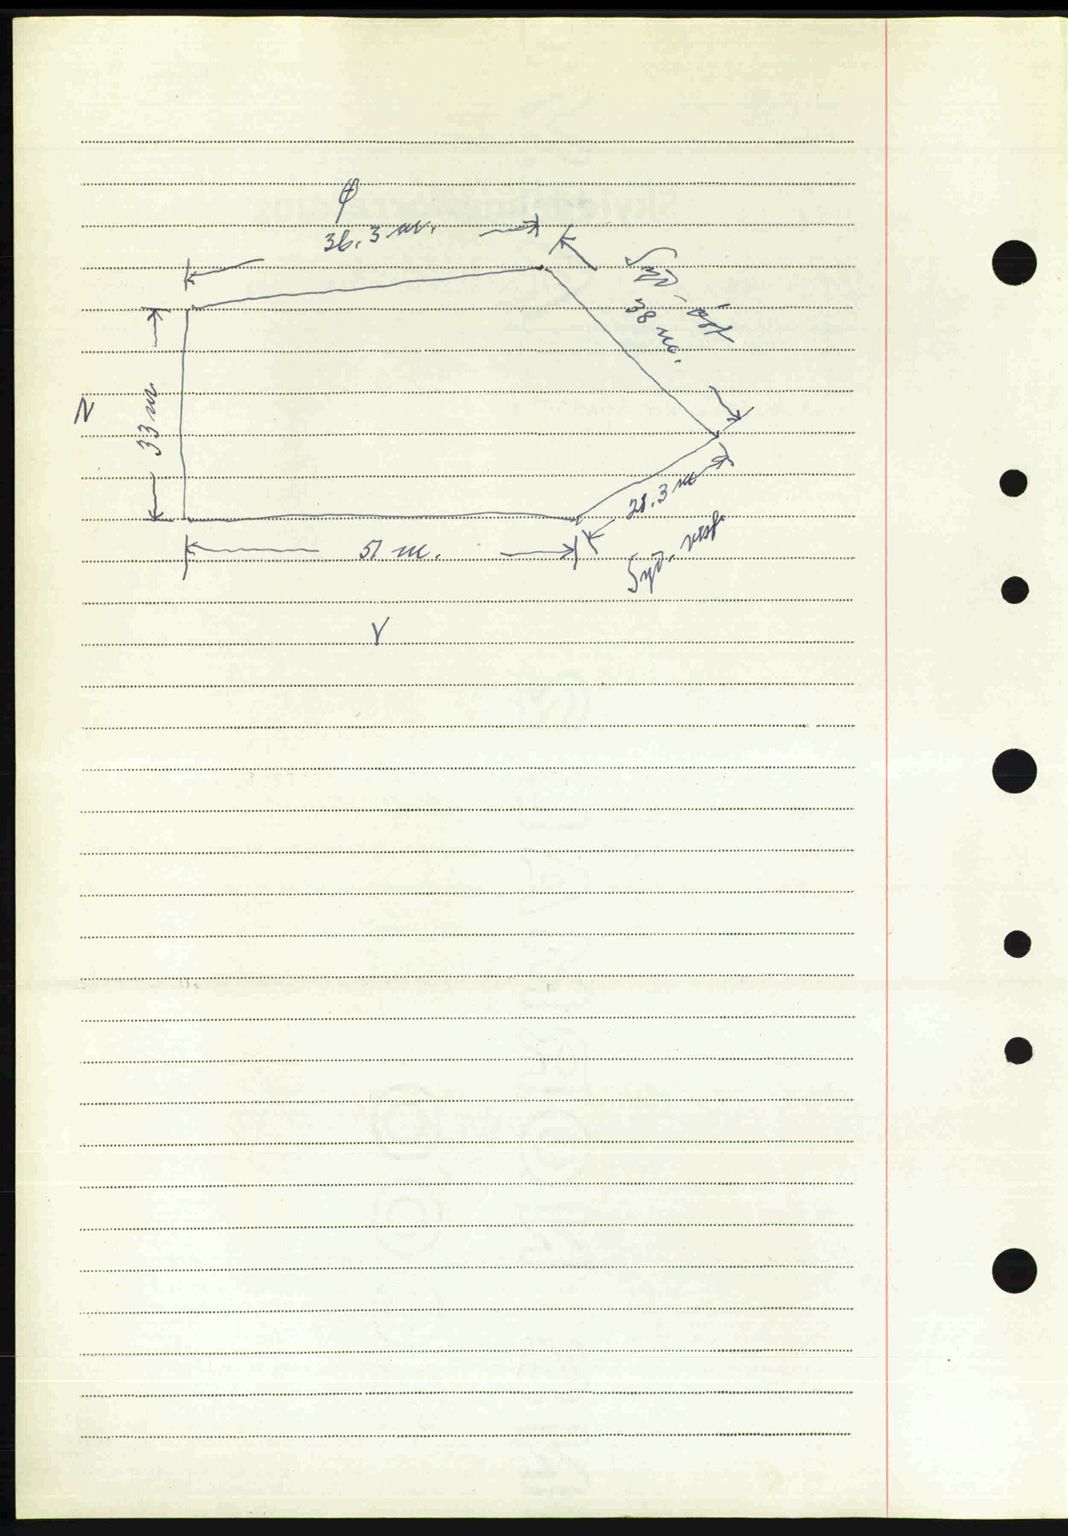 Ø
36.3 m.
Syd-öst
38 m.
N
33 m
28.3 m
Syd-vest
51 m.
V